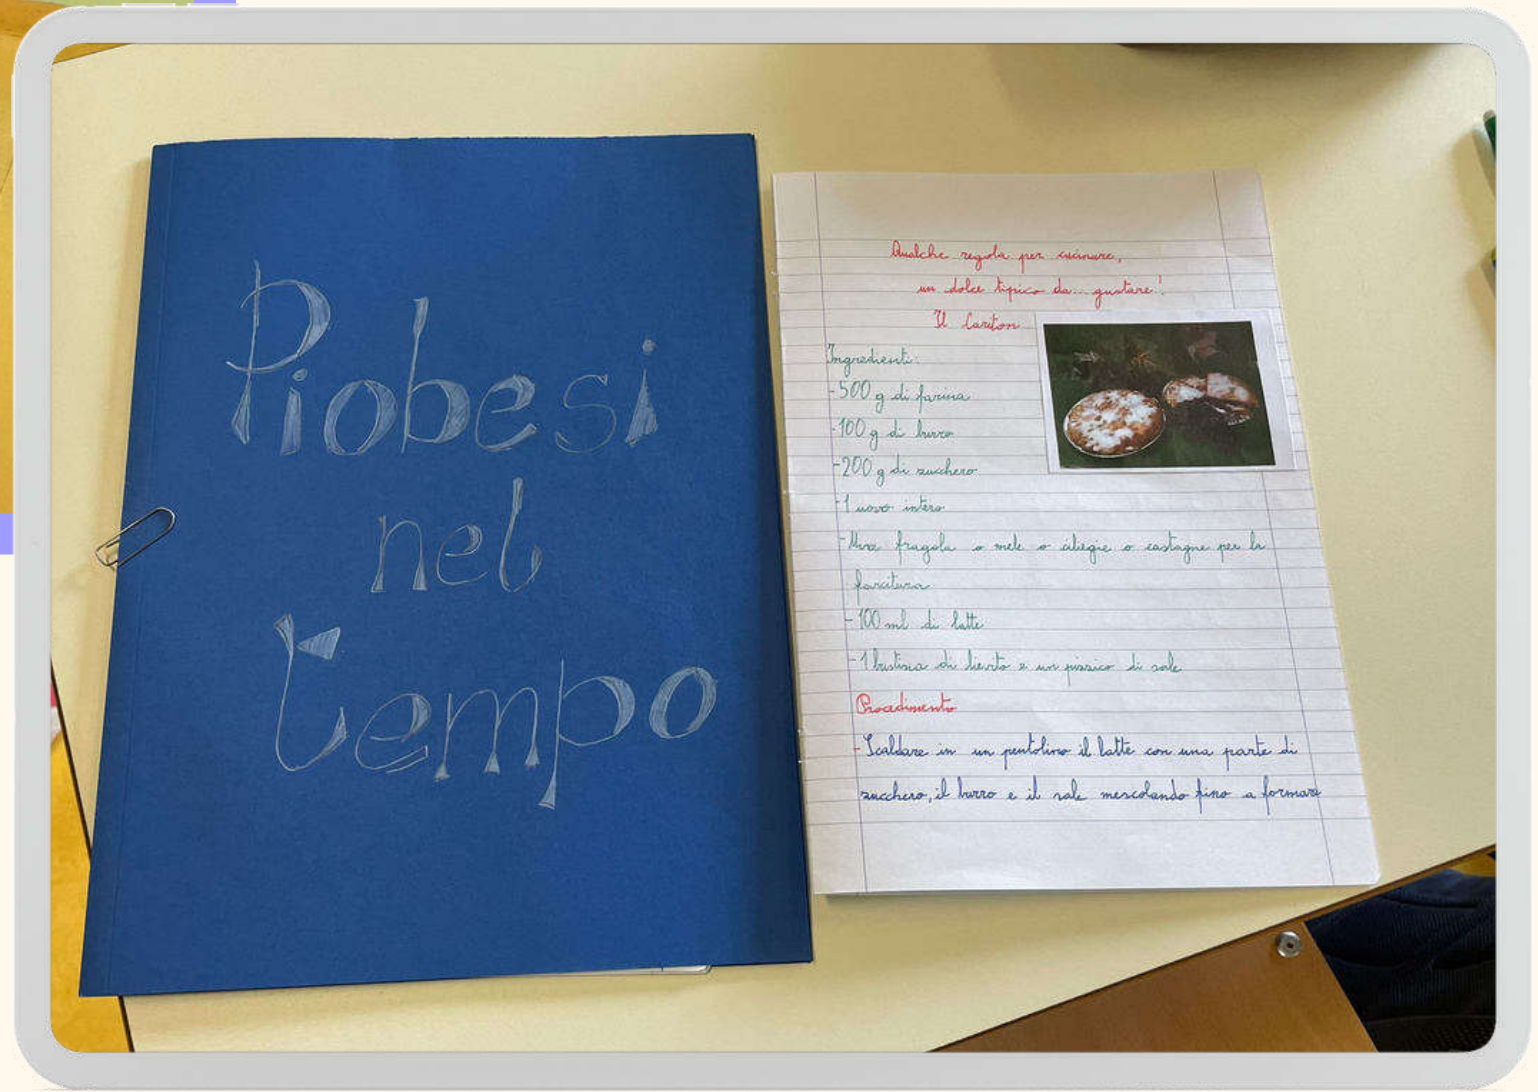 Piobesi
nel
tempo
Qualche regola per cucinare,
un dolce tipico da... gustare!
Il Cariton
Ingredienti:
-500 g di farina
-100 g di burro
-200 g di zucchero
-1 uovo intero
-Uva fragola o mele o ciliegie o castagne per la
farcitura
-100 ml di latte
-1 bustina di lievito e un pizzico di sale
Procedimento
-Scaldare in un pentolino il latte con una parte di
zucchero, il burro e il sale mescolando fino a formare